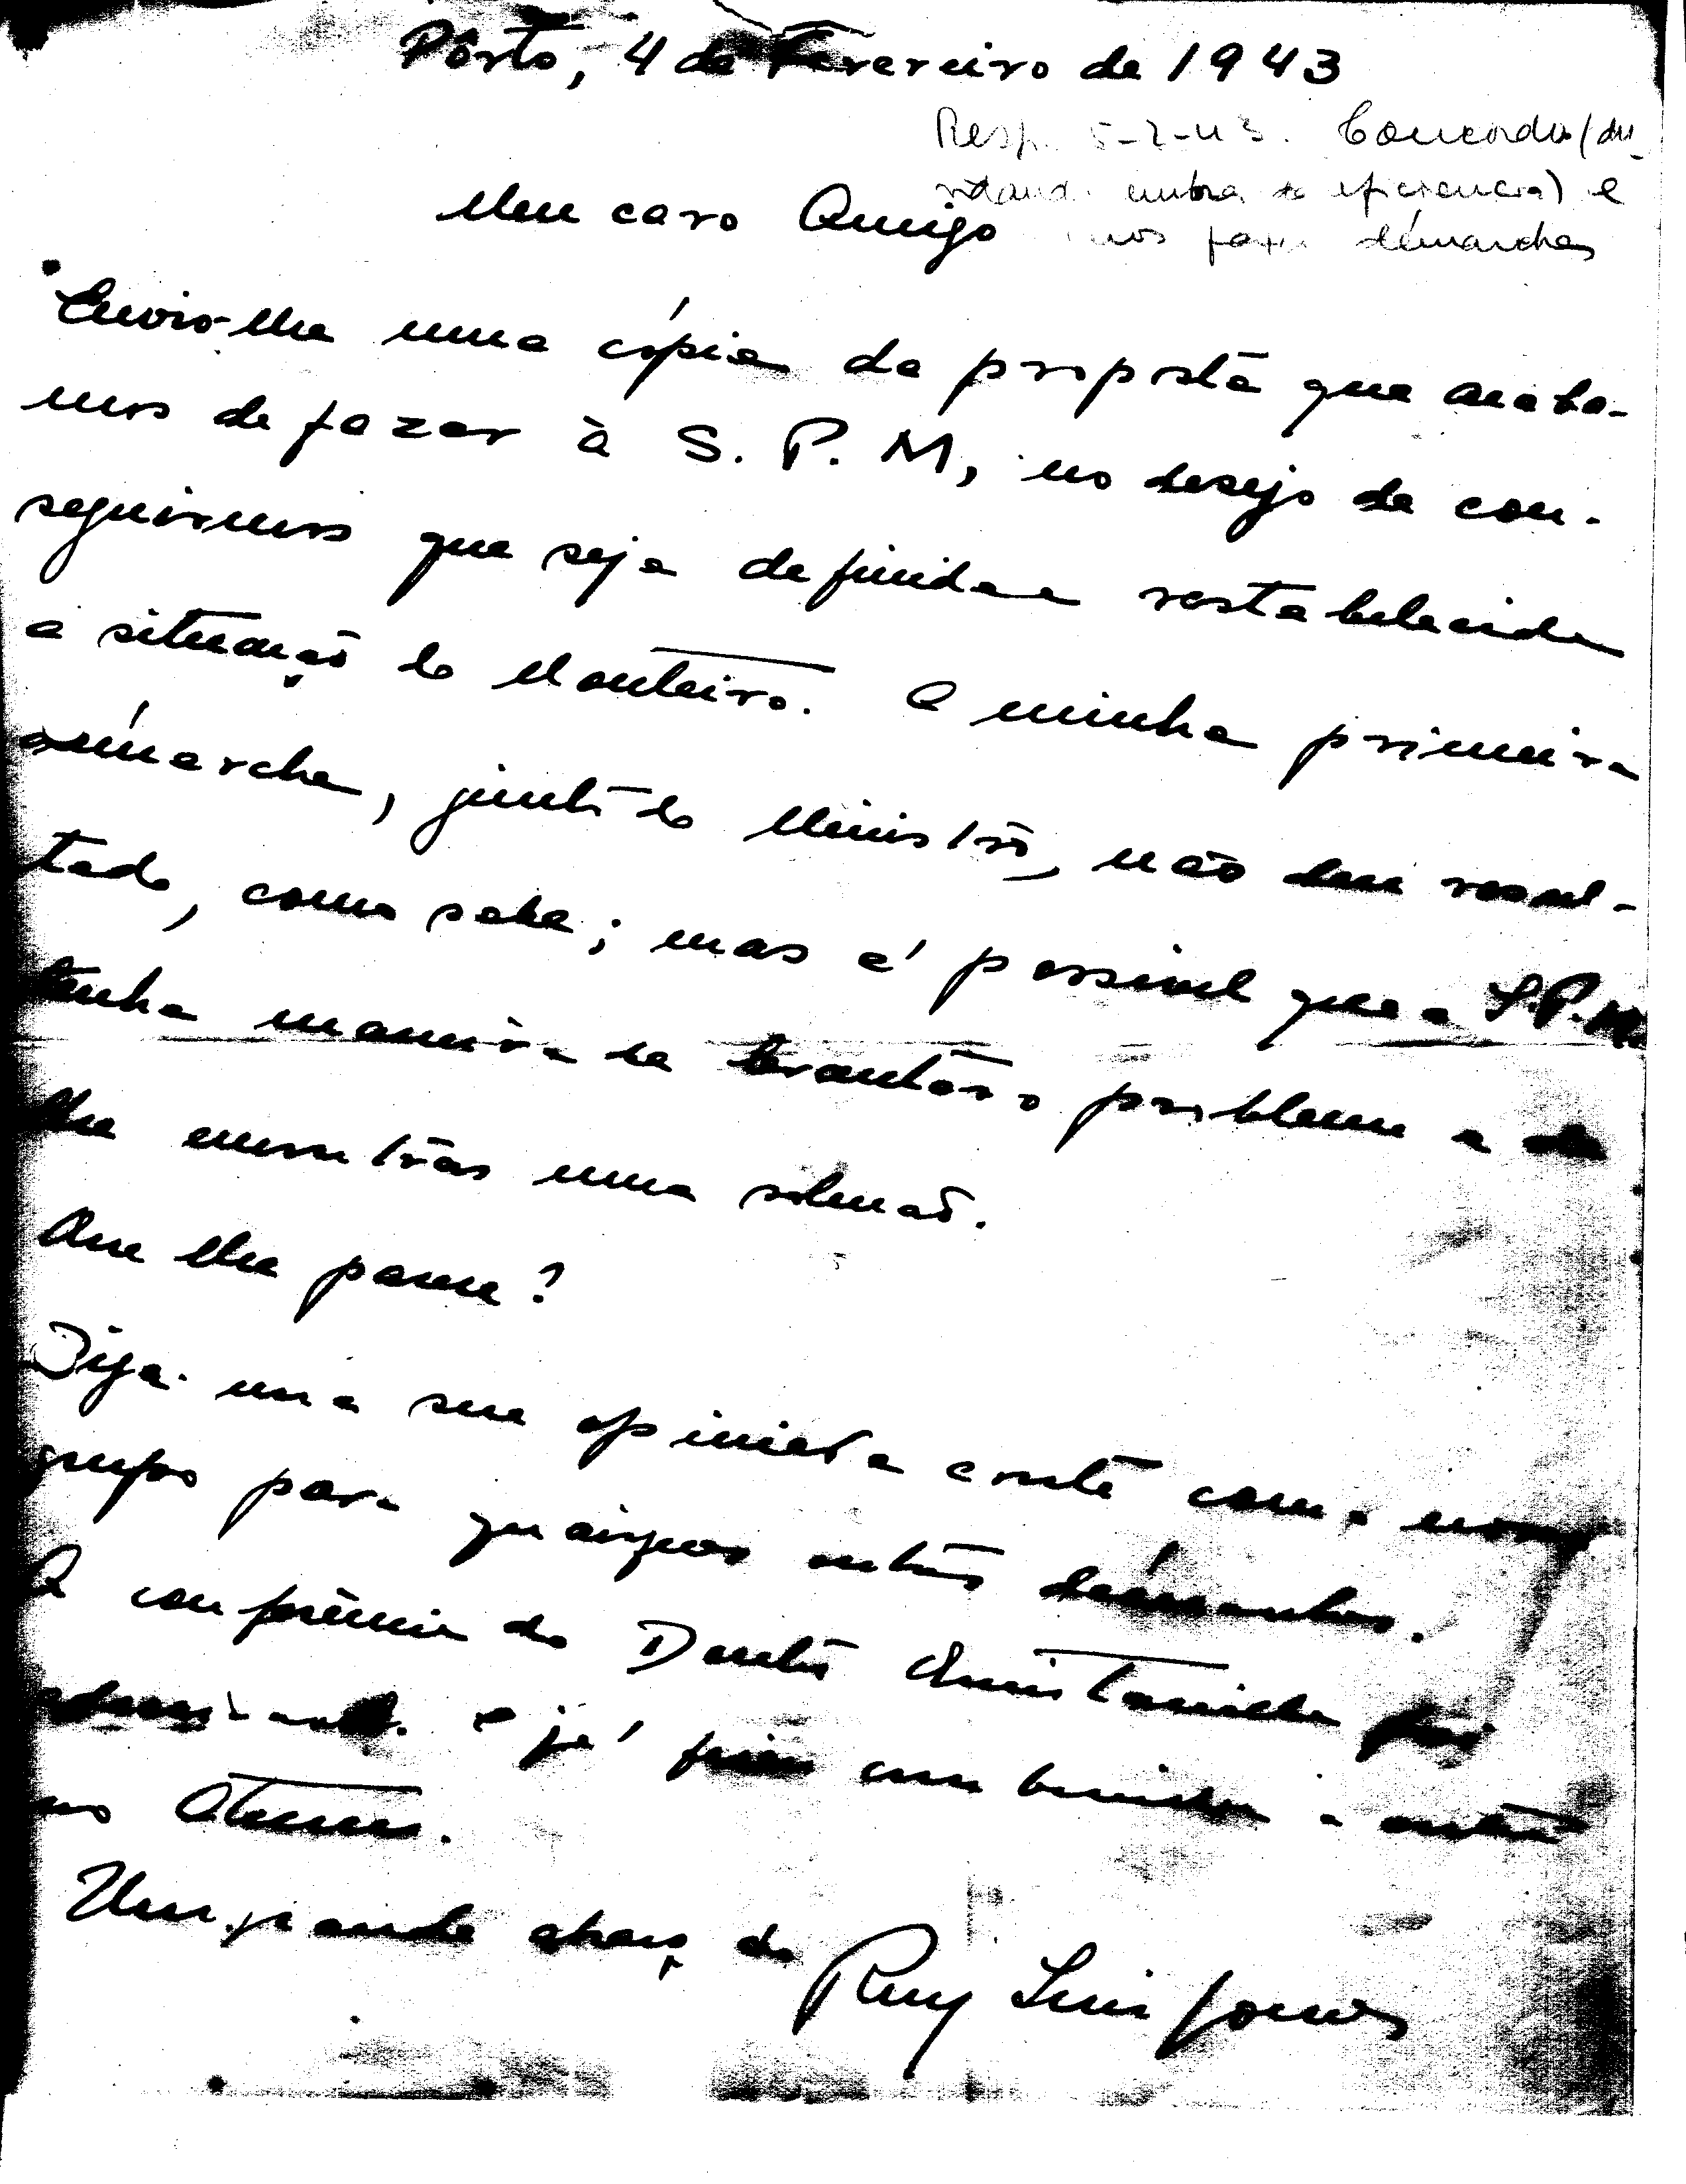 Pôrto, 4 de Fevereiro de 1943
Resp. 5-2-43. Concordo (du-
vidando embora da eficiencia) e
vamos fazer démarches
Meu caro Amigo
Envio-lhe uma cópia da proposta que acaba-
mos de fazer à S. P. M, no desejo de con-
seguirmos que seja definida e restabelecida
a situação do Monteiro. A minha primeira
démarche, junto do Ministro, não deu resul-
tado, como sabe; mas é possivel que a S.P.M.
tenha maneira de levantar o problema e de
lhe encontrar uma solução.
Que lhe parece?
Diga-me a sua opinião e conte com o nosso
grupo para quaisquer outras démarches.
A conferência do Doutor
foi
e já ficou combinada a outra
no Ateneu.
Um grande abraço do
Ruy Luis Gomes